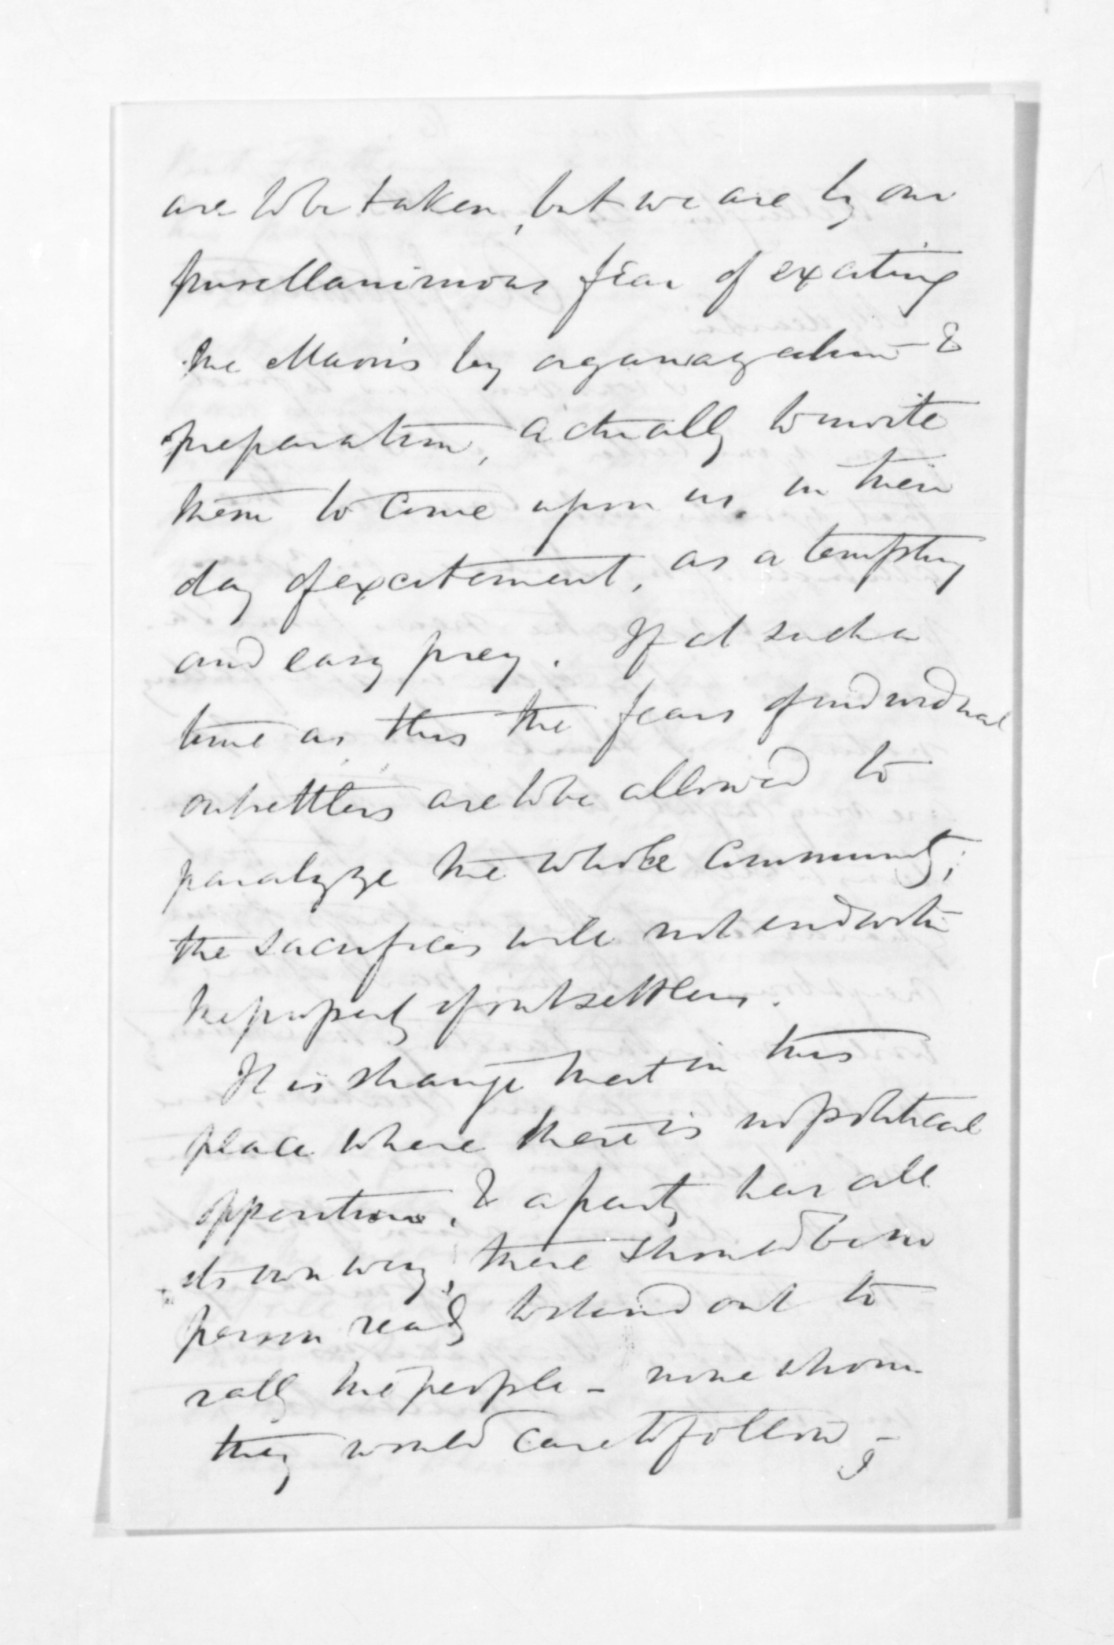 are to be taken, but we are by our
pusellanimous fear of exciting
the Maoris by organization &
preparation, actually to invite
them to come upon us, in their
day of excitement, as a tempting
and easy prey. If at such a
time as this the fears of individual
outsettlers are to be allowed to
paralyze the whole community;
the sacrifices will not end with
the property of outsettlers.
It is strange that in this
place where there is no political
opposition, & a party has all
its own way, there should be no
person ready to stand out to
rally the people - none whom
they would care to follow, -
I